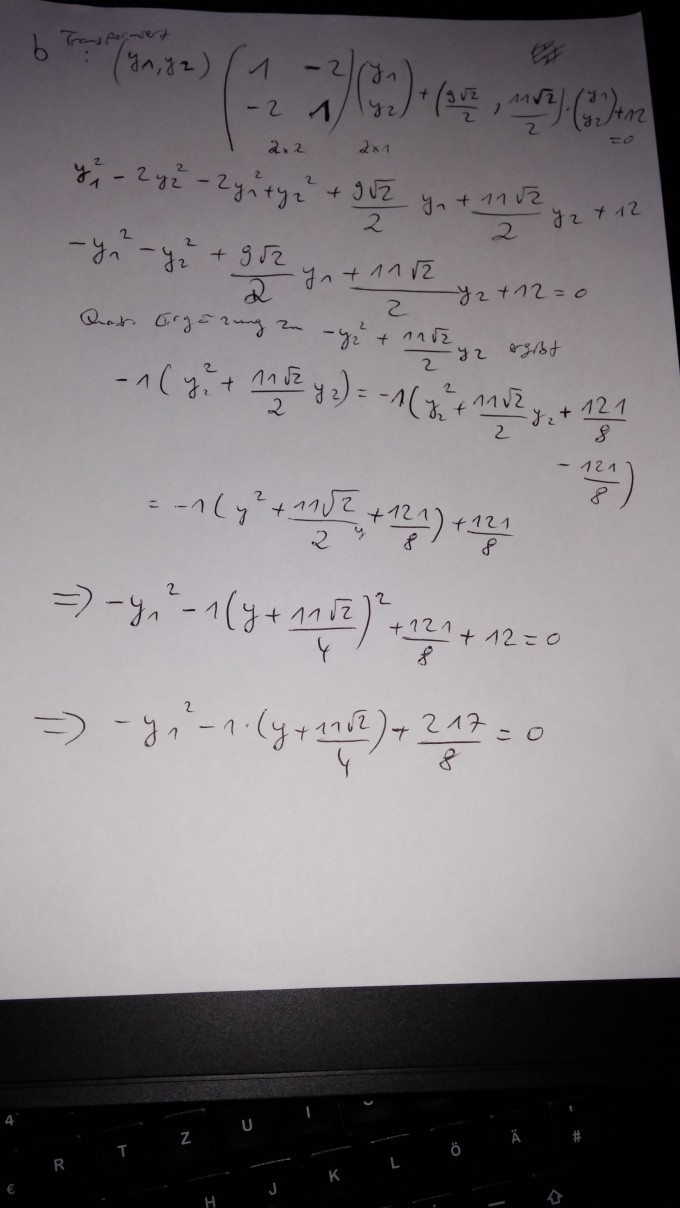 b Transformiert
: (y1, y2) ( 1 -2 ; -2 1 ) ( y1 ; y2 ) + ( 9√2/2 , 11√2/2 ) · ( y1 ; y2 ) + 12 = 0
2x2 2x1
y1² - 2y2² - 2y1² + y2² + 9√2/2 y1 + 11√2/2 y2 + 12
-y1² - y2² + 9√2/2 y1 + 11√2/2 y2 + 12 = 0
Quat. Ergänzung zu -y2² + 11√2/2 y2 ergibt
-1( y2² + 11√2/2 y2 ) = -1( y2² + 11√2/2 y2 + 121/8
- 121/8 )
= -1( y² + 11√2/2 y + 121/8 ) + 121/8
=> -y1² - 1( y + 11√2/4 )² + 121/8 + 12 = 0
=> -y1² - 1·( y + 11√2/4 ) + 217/8 = 0
4
€ R T Z U I
H J K L Ö Ä #
'